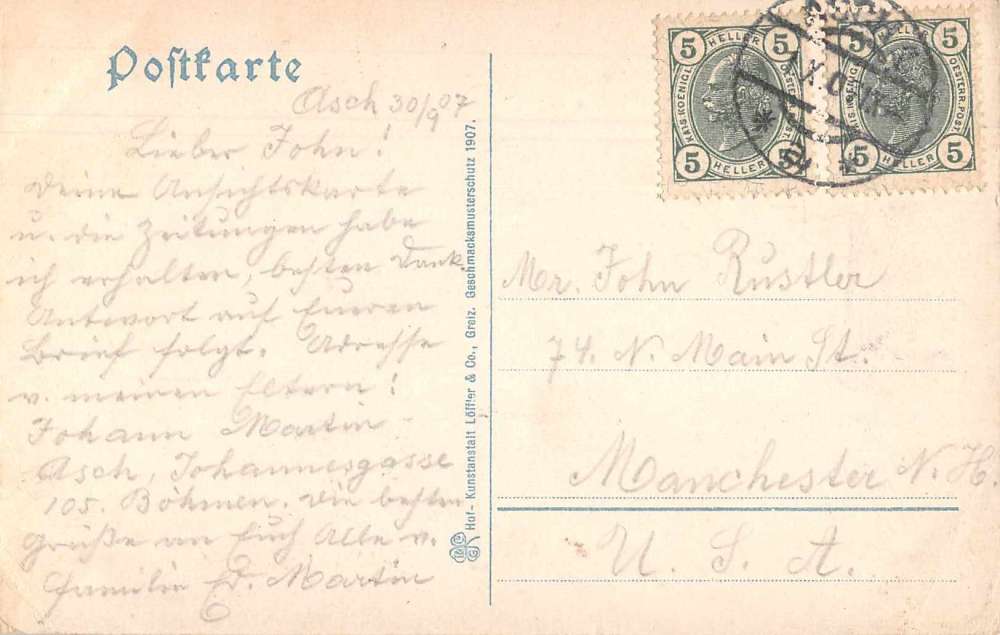 Postkarte
Asch 30/9 07
Lieber John!
Deine Ansichtskarte
u. die Zeitungen habe
ich erhalten, besten Dank.
Antwort auf Eueren
Brief folgt. Adresse
v. meinen Eltern!
Johann Martin
Asch, Johannesgasse
105. Böhmen. Die besten
Grüße an Euch Alle v.
Familie Ed. Martin
Hof-Kunstanstalt Löffler & Co., Greiz. Geschmacksmusterschutz 1907.
5 HELLER 5
KAIS. KOENIGL. OESTERR. POST.
5 HELLER 5
5 HELLER 5
KAIS. KOENIGL. OESTERR. POST.
5 HELLER 5
Mr. John Rustler
74. N. Main St.
Manchester N. H.
U. S. A.